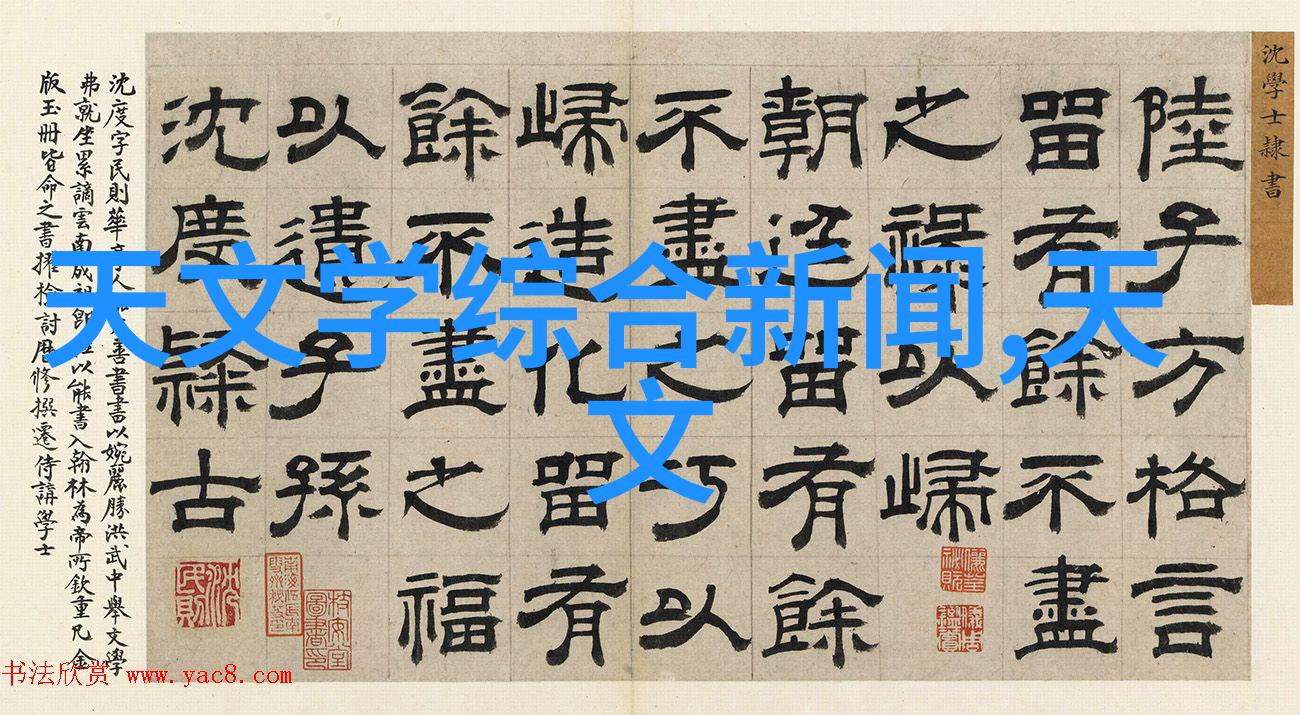 沈學士隸書
陸子方格言
留有餘不盡
之祿以歸
朝廷留有餘
不盡之巧以
歸造化留有
餘不盡之福
以遺子孫
沈度隸古
沈民則
沈度字民則華亭人善書書以婉麗勝洪武中舉文學
弗就坐累謫雲南成祖即位以能書入翰林為帝所欽重凡金
版玉冊皆命之書擢檢討歷修撰遷侍講學士
天文学综合新闻,天
文
书法欣赏 www.yac8.com